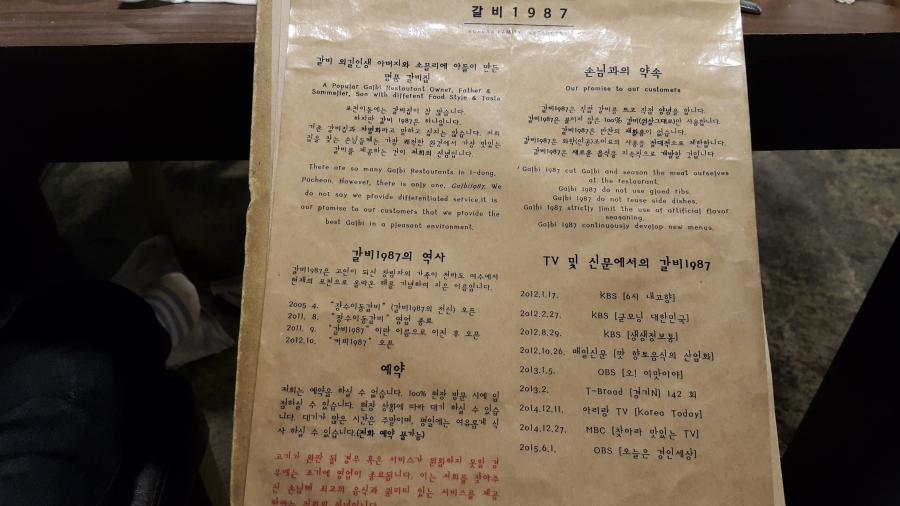 갈비1987
KOREAN FAMILY RESTAURANT
갈비 외길인생 아버지와 소믈리에 아들이 만든
명품 갈비집
A Popular Galbi Restaurant Owner, Father &
Sommelier, Son with different Food Style & Taste
포천이동에는 갈비집이 참 많습니다.
하지만 갈비 1987은 하나입니다.
기존 갈비집과 차별화라고 말하고 싶지는 않습니다. 저희
집을 찾는 손님들께는 가장 쾌적한 환경에서 가장 맛있는
갈비를 제공하는 것이 저희의 신념입니다.
There are so many Galbi Restaurants in I-dong,
Pocheon. However, there is only one, Galbi1987. We
do not say we provide differentiated service.It is
our promise to our customers that we provide the
best Galbi in a pleasant environment.
갈비1987의 역사
갈비1987은 고인이 되신 창립자의 가족이 전라도 여수에서
현재의 포천으로 올라온 해를 기념하려 지은 이름입니다.
2005 4. "장수이동갈비" (갈비1987의 전신) 오픈
2011. 8. "장수이동갈비" 영업 종료
2011. 9. "갈비1987" 이란 이름으로 이전 후 오픈
2012.10. "커피1987" 오픈
예약
저희는 예약을 하실 수 없습니다. 100% 현장 방문 시에 입
점하실 수 있습니다. 현장 상황에 따라 대기 하실 수 있습
니다. 대기가 많은 시간은 주말이며, 평일에는 여유롭게 식
사 하실 수 있습니다.(전화 예약 불가능)
고기가 완판 될 경우 혹은 서비스가 원활하지 못할 경
우에는 조기에 영업이 종료됩니다. 이는 저희를 찾아주
신 손님께 최고의 음식과 퀄리티 있는 서비스를 제공
하려는 저희의 신념입니다.
손님과의 약속
Our promise to our customers
갈비1987은 직접 갈비를 뜨고 직접 양념을 합니다.
갈비1987은 붙이지 않은 100% 갈비(원상그대로)만 사용합니다.
갈비1987은 반찬의 재활용이 없습니다.
갈비1987은 화학(인공)조미료의 사용을 절대적으로 제한합니다.
갈비1987은 새로운 음식을 지속적으로 개발할 것입니다.
Galbi 1987 cut Galbi and season the meat ourselves
at the restaurant.
Galbi 1987 do not use glued ribs.
Galbi 1987 do not reuse side dishes.
Galbi 1987 strictly limit the use of artificial flavor
seasoning.
Galbi 1987 continuously develop new menus.
TV 및 신문에서의 갈비1987
2012.1.17. KBS [6시 내고향]
2012.2.27. KBS [굳모닝 대한민국]
2012.8.29. KBS [생생정보통]
2012.10.26. 매일신문 [맛 향토음식의 산업화]
2013.1.5. OBS [오! 이맛이야]
2013.2. T-Broad [경기N] 142 회
2014.12.11. 아리랑 TV [Korea Today]
2014.12.27. MBC [찾아라 맛있는 TV]
2015.6.1. OBS [오늘은 경인세상]